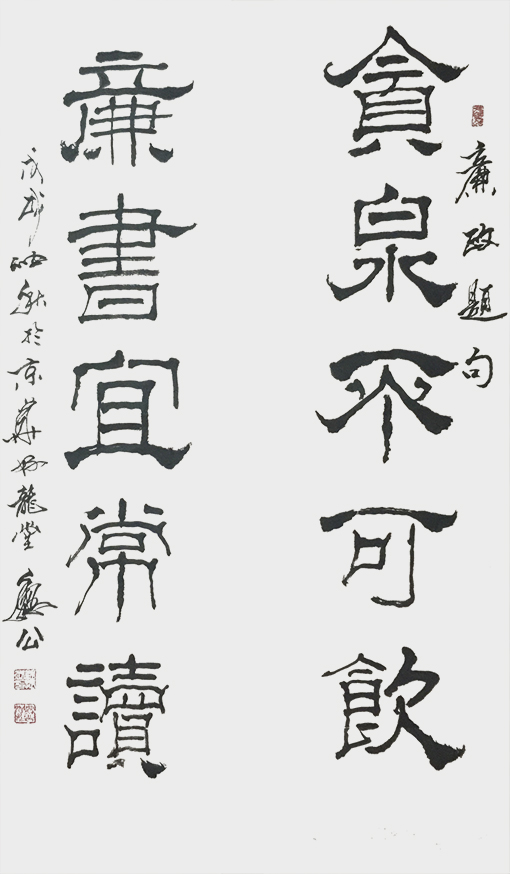 廉政題句
貪泉不可飲
廉書宜常讀
戊戌秋於京華龍堂公